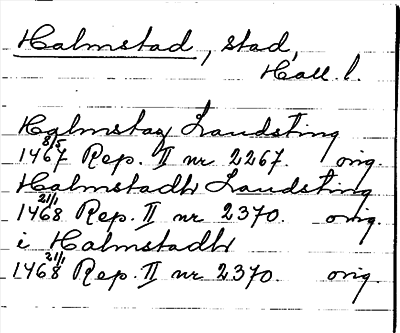 Halmstad, stad,
Hall. l.
Halmstag Landsting
1467 8/5 Rep. II nr 2267. orig.
Halmstadh Landsting
1468 21/1 Rep. II nr 2370. orig.
i Halmstadh
1468 21/1 Rep. II nr 2370. orig.